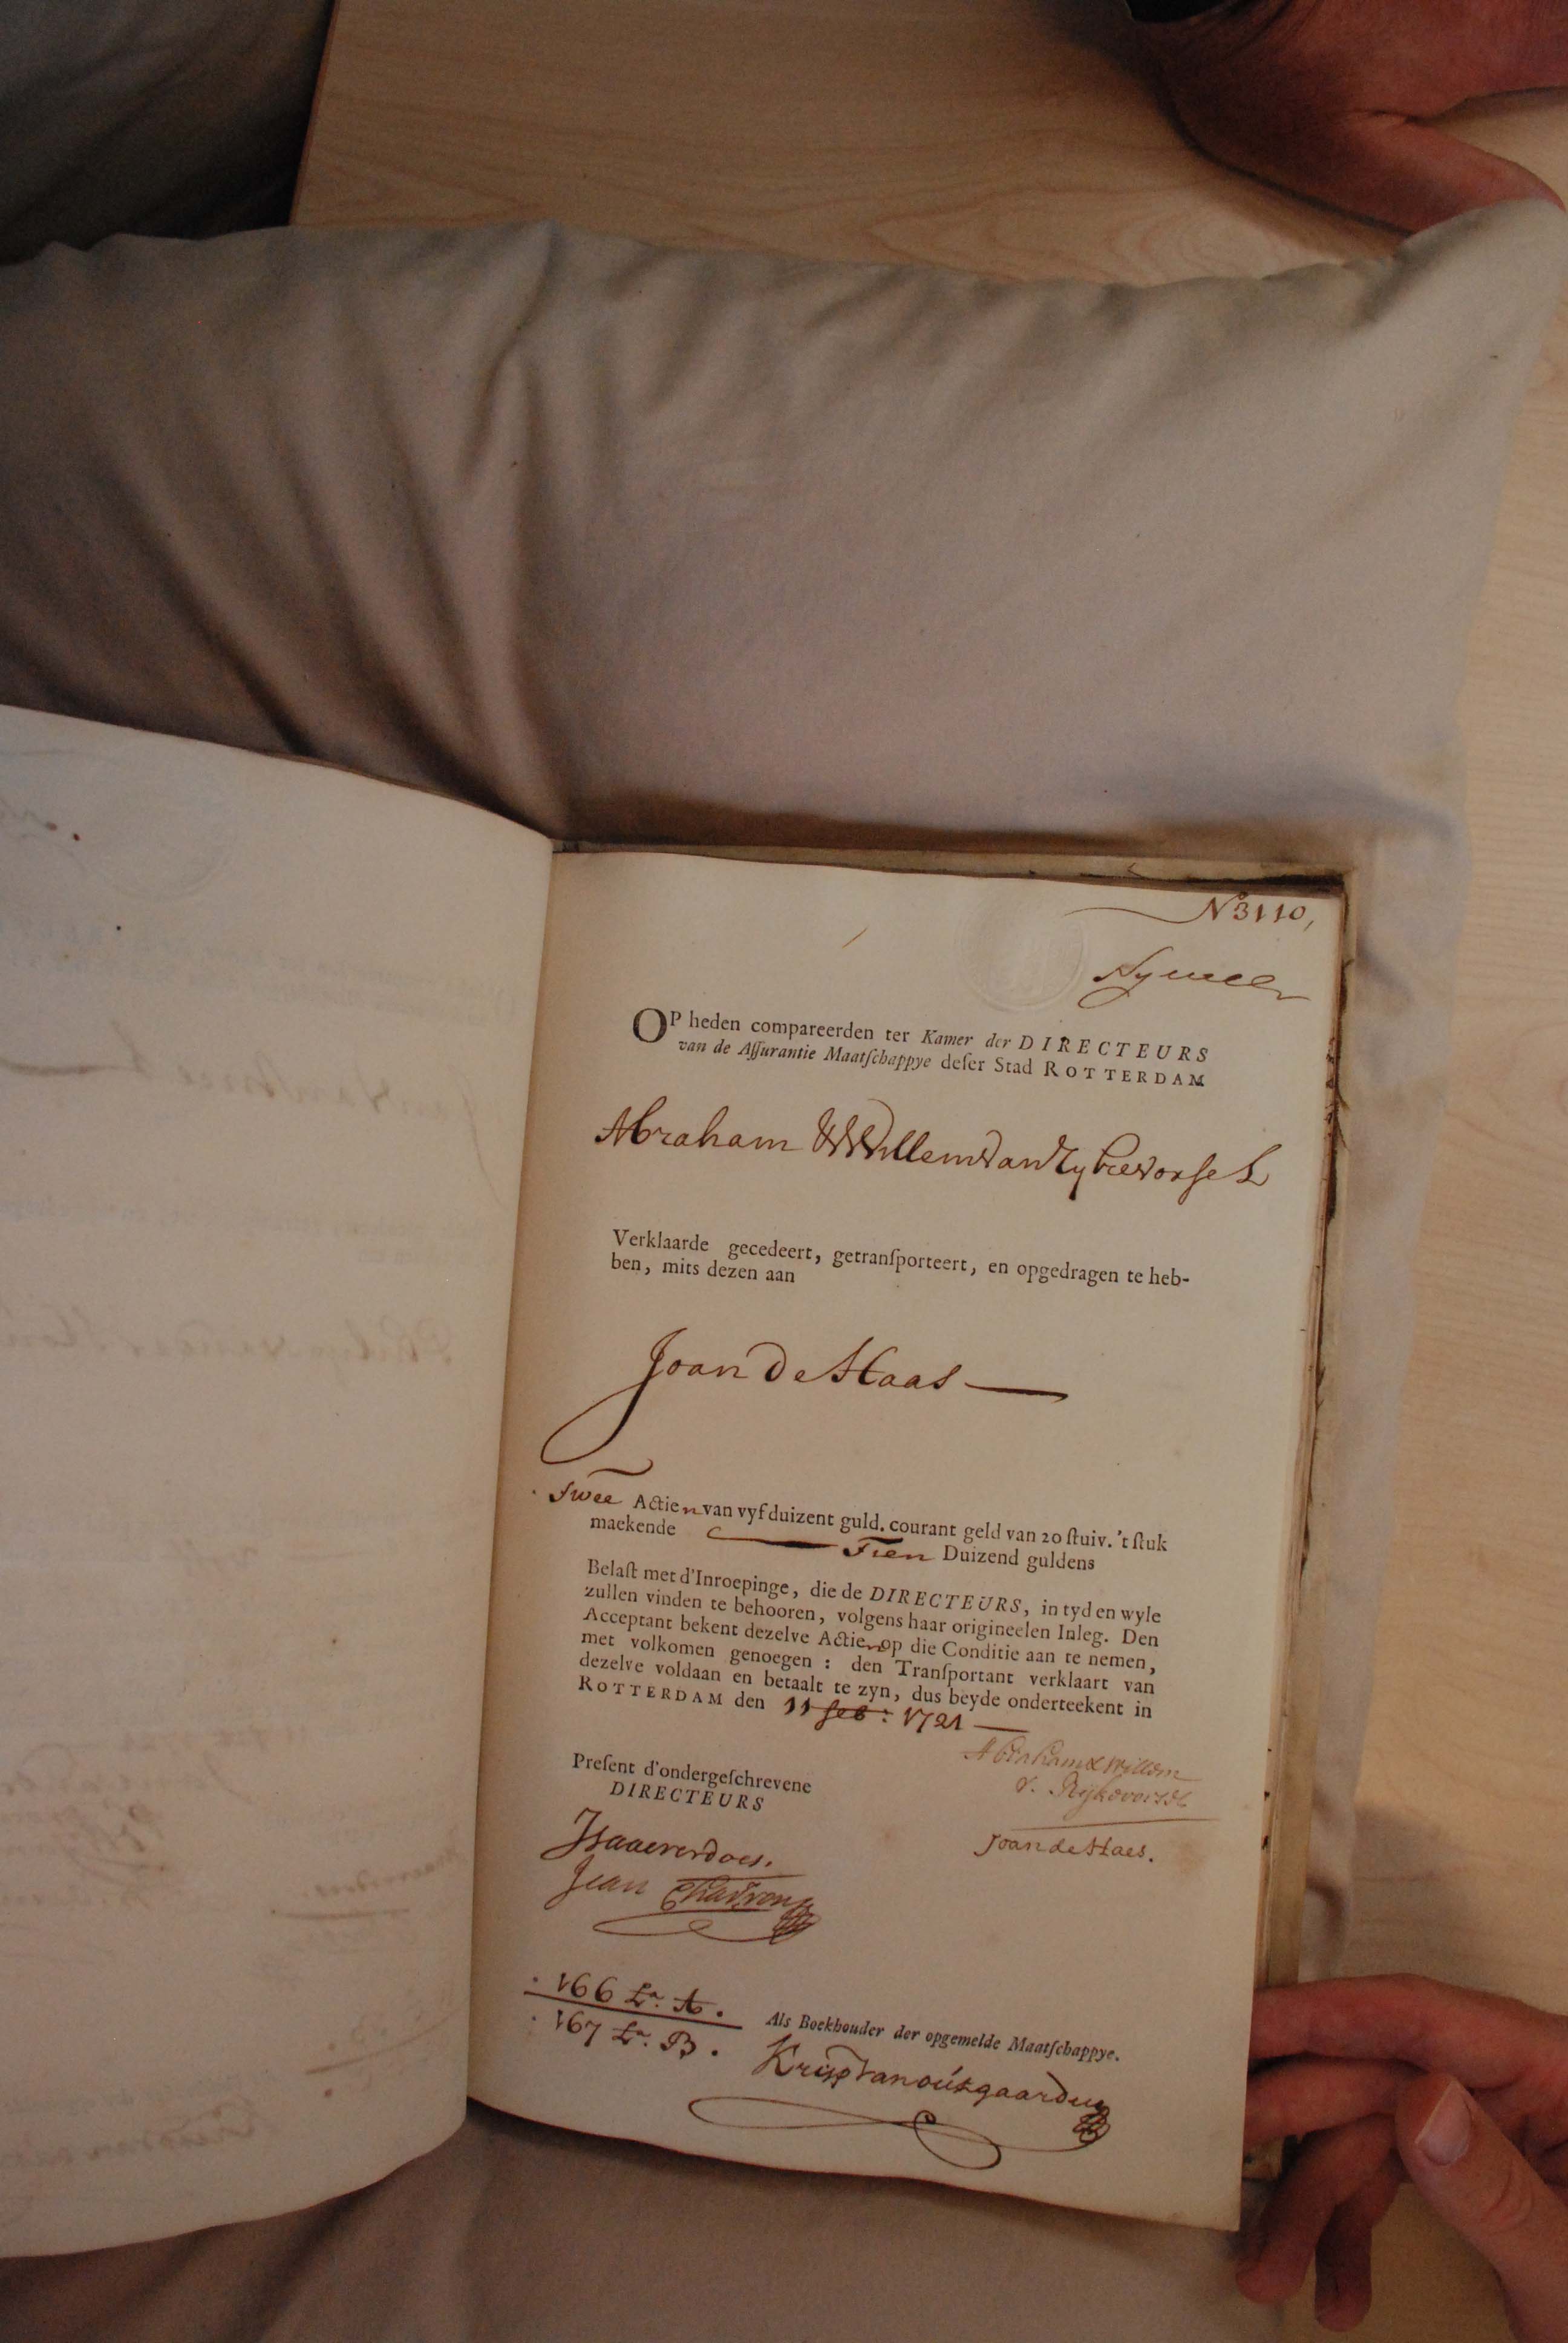 N 3110,
OP heden compareerden ter Kamer der DIRECTEURS
van de Aſſurantie Maatſchappye deſer Stad ROTTERDAM
Abraham & Willem Van Rykevorsel
Verklaarde gecedeert, getranſporteert, en opgedragen te heb-
ben, mits dezen aan
Joan De Haas
Twee Actien van vyf duizent guld. courant geld van 20 ſtuiv. 't ſtuk
maekende Tien Duizend guldens
Belaſt met d'Inroepinge, die de DIRECTEURS, in tyd en wyle
zullen vinden te behooren, volgens haar origineelen Inleg. Den
Acceptant bekent dezelve Actien op die Conditie aan te nemen,
met volkomen genoegen : den Tranſportant verklaart van
dezelve voldaan en betaalt te zyn, dus beyde onderteekent in
ROTTERDAM den 11 feb: 1721
Abraham & Willem
v. Rijkevorsel
Preſent d'ondergeſchrevene
DIRECTEURS
Joan de Haes.
Jean
166 La. A.
167 La. B.
Als Boekhouder der opgemelde Maatſchappye.